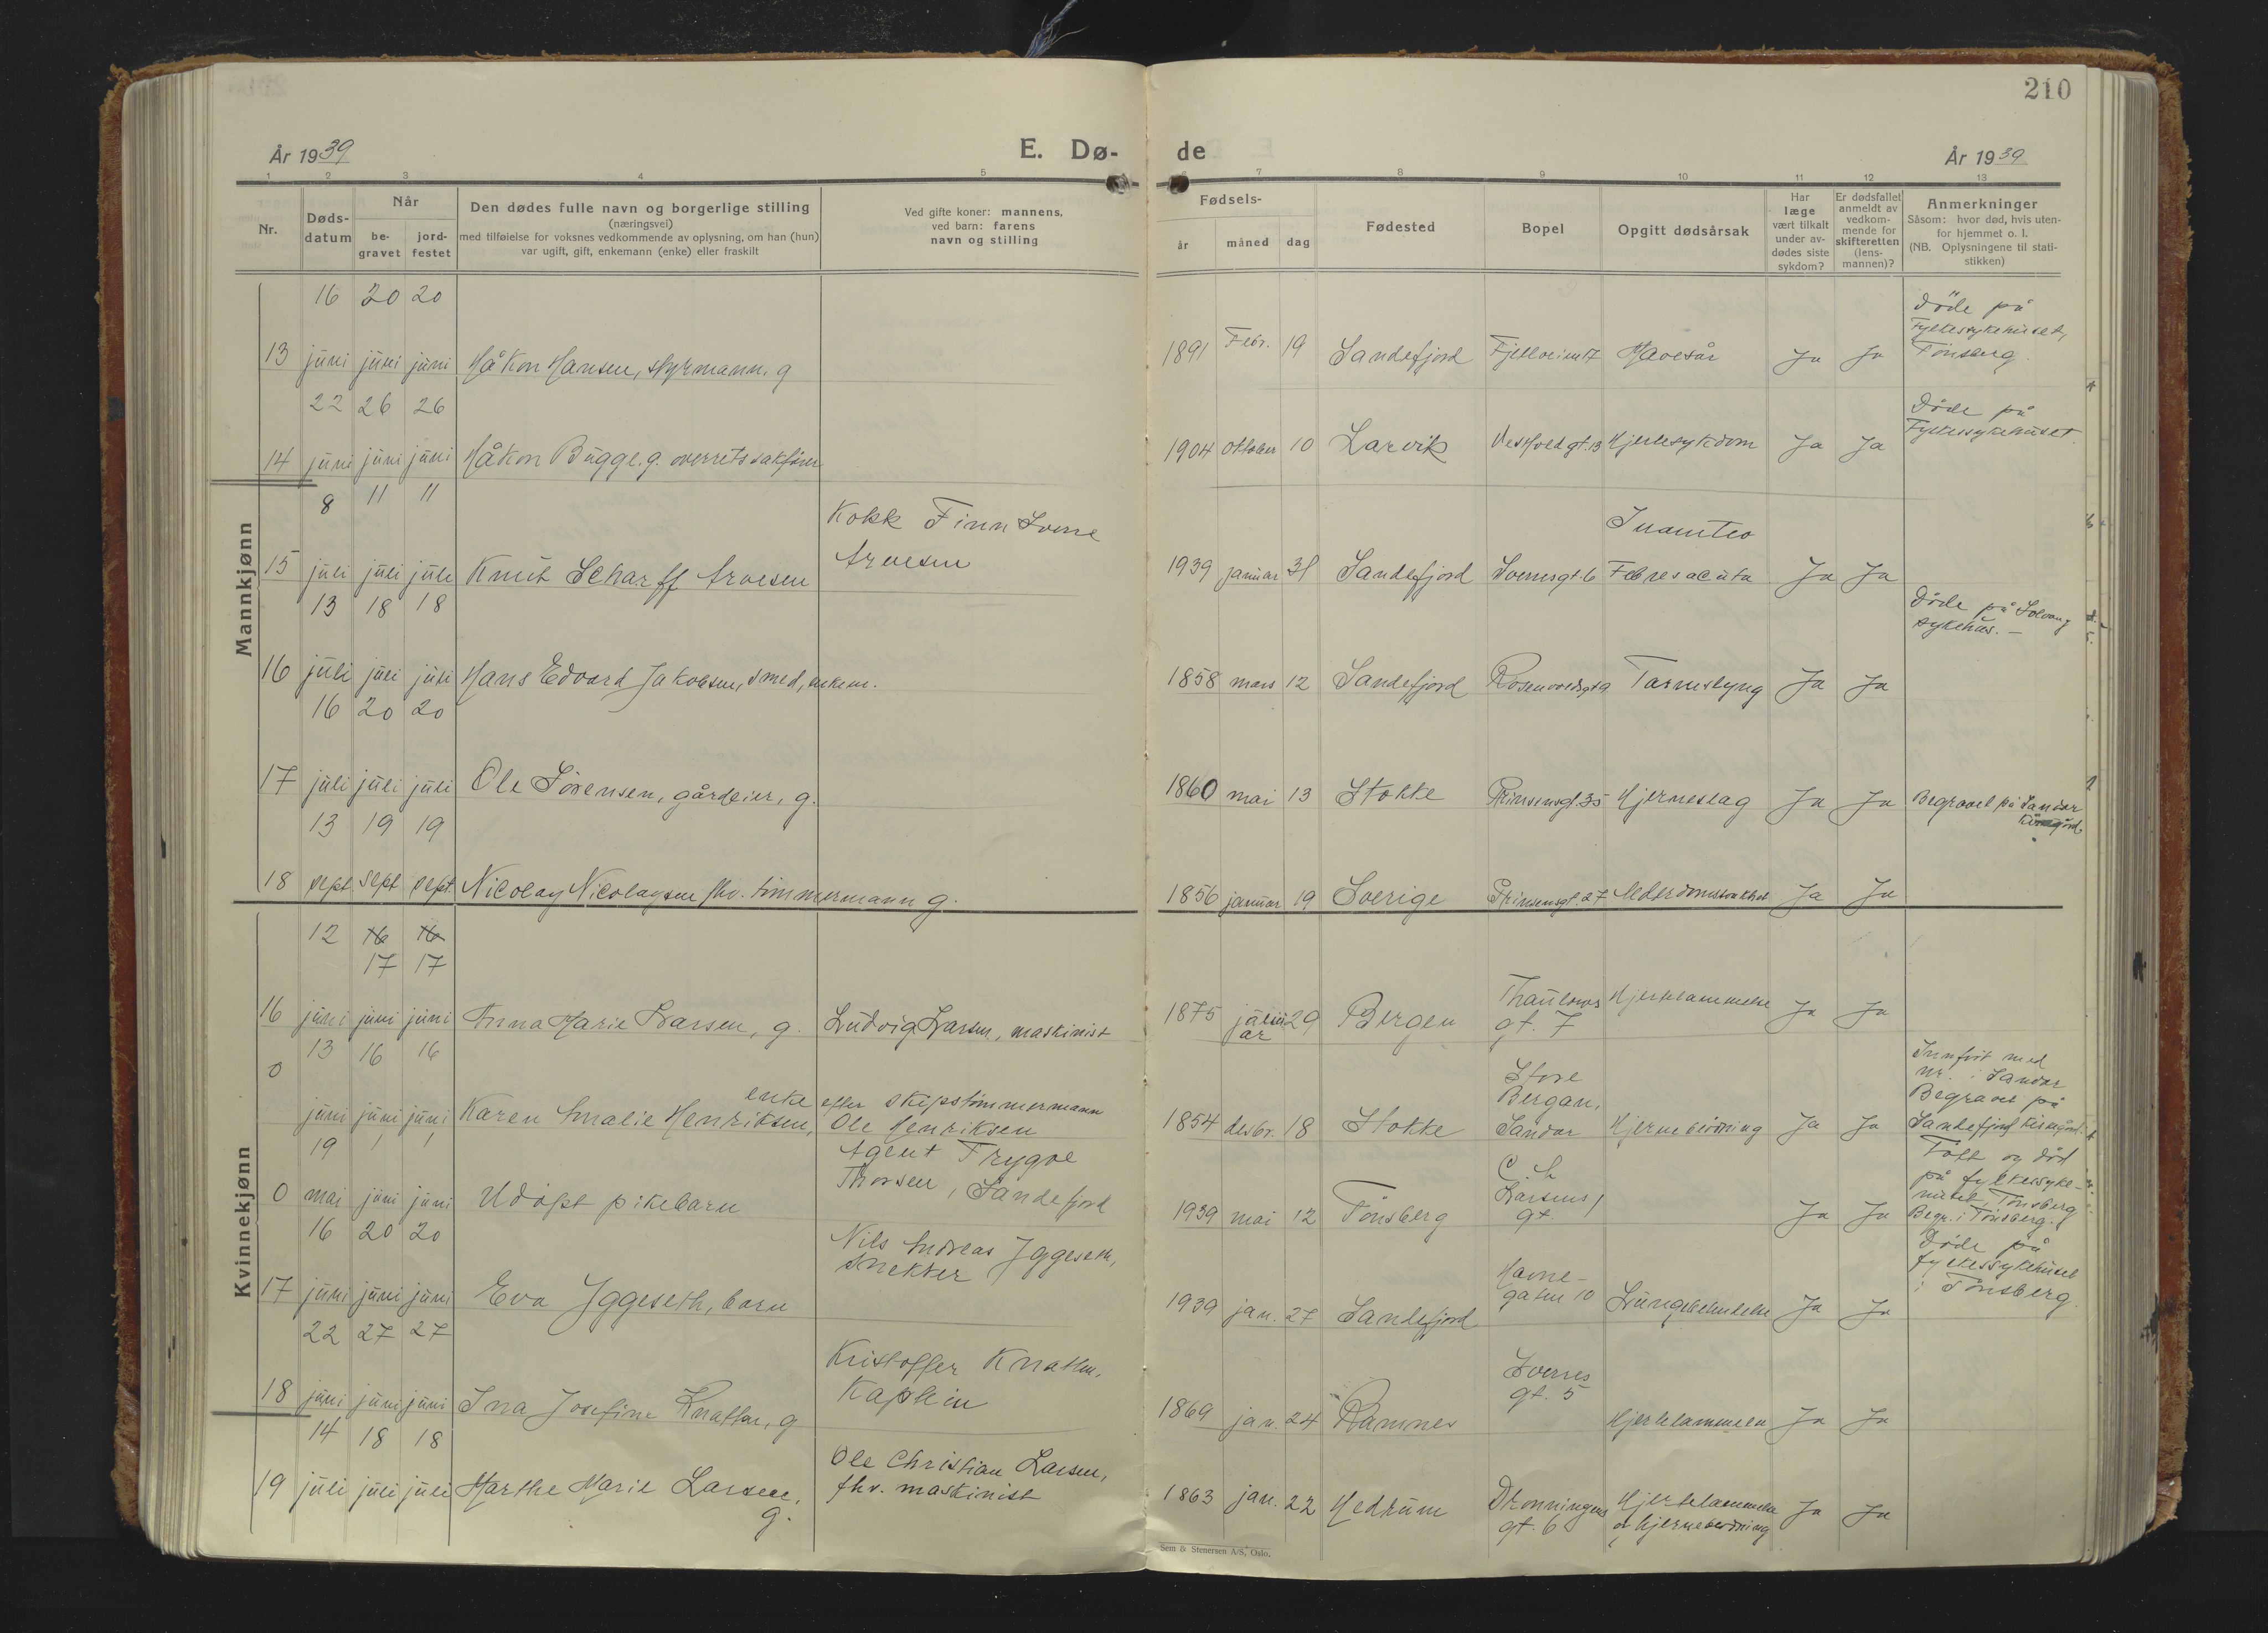 210
År 1939
E. Dø-
de
År 1939
1 2 3 4 5 6 7 8 9 10 11 12 13
Nr.
Døds-
datum
Når
be-
gravet
jord-
festet
Den dødes fulle navn og borgerlige stilling
(næringsvei)
med tilføielse for voksnes vedkommende av oplysning, om han (hun)
var ugift, gift, enkemann (enke) eller fraskilt
Ved gifte koner: mannens,
ved barn: farens
navn og stilling
Fødsels-
år
måned
dag
Fødested
Bopel
Opgitt dødsårsak
Har
læge
vært tilkalt
under av-
dødes siste
sykdom?
Er dødsfallet
anmeldt av
vedkom-
mende for
skifteretten
(lens-
mannen)?
Anmerkninger
Såsom: hvor død, hvis uten-
for hjemmet o. l.
(NB. Oplysningene til stati-
stikken)
Mannkjønn
16 20 20
13 juni juni juni Håkon Hansen, styrmann. g
1891 Febr. 19 Sandefjord Fjellveien 7 Mavesår Ja Ja
Døde på
Fylkessykehuset,
Tønsberg.
22 26 26
14 juni juni juni Håkon Bugge. g. overrettssakfører
1904 oktober 10 Larvik Vesthold gt. 13 Hjertesykdom Ja Ja
Døde på
Fylkessykehuset.
8 11 11
15 juli juli juli Knut Scharff Arvesen
Kokk Finn Sverre
Arvesen
1939 januar 31 Sandefjord Sverresgt. 6
Febres acuta Ja Ja
13 18 18
16 juli juli juli Hans Edvard Jakobsen, smed, enkem.
1858 mars 12 Sandefjord Rosenvoldsgt 9 Tarmslyng Ja Ja
Døde på Solvang
sykehus. –
16 20 20
17 juli juli juli Ole Sørensen, gårdeier, g.
1860 mai 13 Stokke Prinsensgt. 35 Hjerneslag Ja Ja
Begravet på Sandar
Kirkegård.
13 19 19
18 sept. sept sept. Nicolay Nicolaysen fhv. tømmermann g.
1856 januar 19 Sverige Prinsensgt. 27 Alderdomssvakhet Ja Ja
Kvinnekjønn
12 16 16
17 17
16 juni juni juni Anna Marie Larsen, g. Ludvig Larsen, maskinist
1875 29 Bergen
Thaulows
gt. 7
Hjertelammelse Ja Ja
13 16 16
0 juni juni juni Karen Amalie Henriksen, enke
efter skipstømmermann
Ole Henriksen
1854 desbr. 18 Stokke
Store
Bergan,
Sandar
Hjerneblødning Ja Ja
Innført med
nr. i Sandar
Begravet på
Sandefjord kirkegård.
19 1 1
0 mai juni juni Udøpt pikebarn
Agent Trygve
Thorsen, Sandefjord
1939 mai 12 Tønsberg
Larsens
gt.
Ja Ja
Født og død
på fylkessyke-
huset, Tønsberg
Begr. i Tønsberg.
16 20 20
17 juni juni juni Eva Iggeseth, barn
Nils Andreas Iggeseth,
snekker
1939 jan. 27 Sandefjord
Havne-
gaten 10
Lungebetendelse Ja Ja
Døde på
fylkessykehuset
i Tønsberg.
22 27 27
18 juni juni juni Ina Josefine Knatten, g
Kristoffer Knatten,
Kaptein
1869 jan. 24 Ramnes
Sverres
gt. 5
Hjertelammelse Ja Ja
14 18 18
19 juli juli juli Marthe Marie Larsen,
g.
Ole Christian Larsen,
fhv. maskinist
1863 jan. 22 Hedrum
Dronningens
gt. 6
Hjertelammelse
og hjerneblødning
Ja Ja
Sem & Stenersen A/S, Oslo.